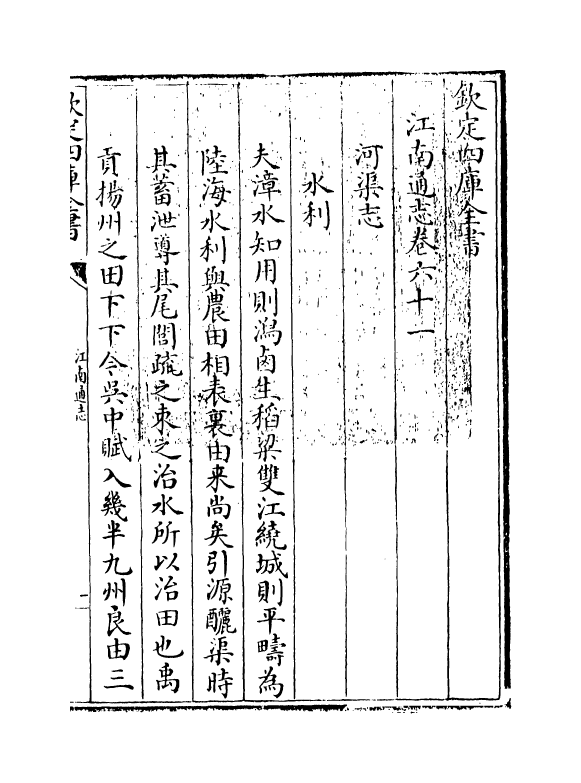 欽定四庫全書
江南通志卷六十一
河渠志
水利
夫漳水知用則潟鹵生稻粱雙江繞城則平疇為
陸海水利與農田相表裏由来尚矣引源釃渠時
其蓄泄導其尾閭疏之束之治水所以治田也禹
貢揚州之田下下今吳中賦入幾半九州良由三
欽定四庫全書
江南通志
一